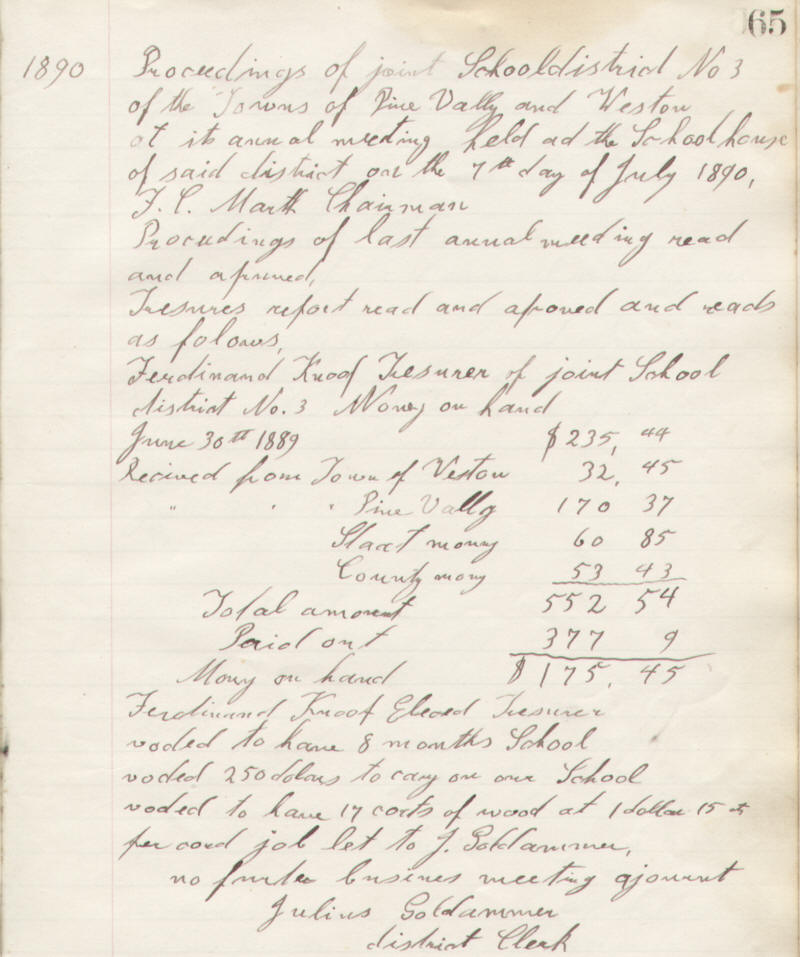 65
1890 Proceedings of joint Schooldistrict No 3
of the Towns of Pine Vally and Weston
at its annual meeting held ad the School house
of said district on the 7th day of July 1890,
F. C. Marth Chairman
Procedings of last annual meeding read
and apruved,
Tresures report read and aproved and reads
as folows,
Ferdinand Knoof Tresurer of joint School
district No. 3 Money on hand
June 30th 1889 $235, 44
Recived from Town of Veston 32, 45
" " " Pine Vally 170 37
Staat money 60 85
County mony 53 43
Total amount 552 54
Paid out 377 9
Mony on hand $175, 45
Ferdinand Knoof Eleced Tresurer
voded to have 8 months School
voded 250 dolars to cary on our School
voded to have 17 corts of wood at 1 dollar 15 cts
per cord job let to J. Goldammer,
no furter busines meeting ajournt
Julius Goldammer
district Clerk